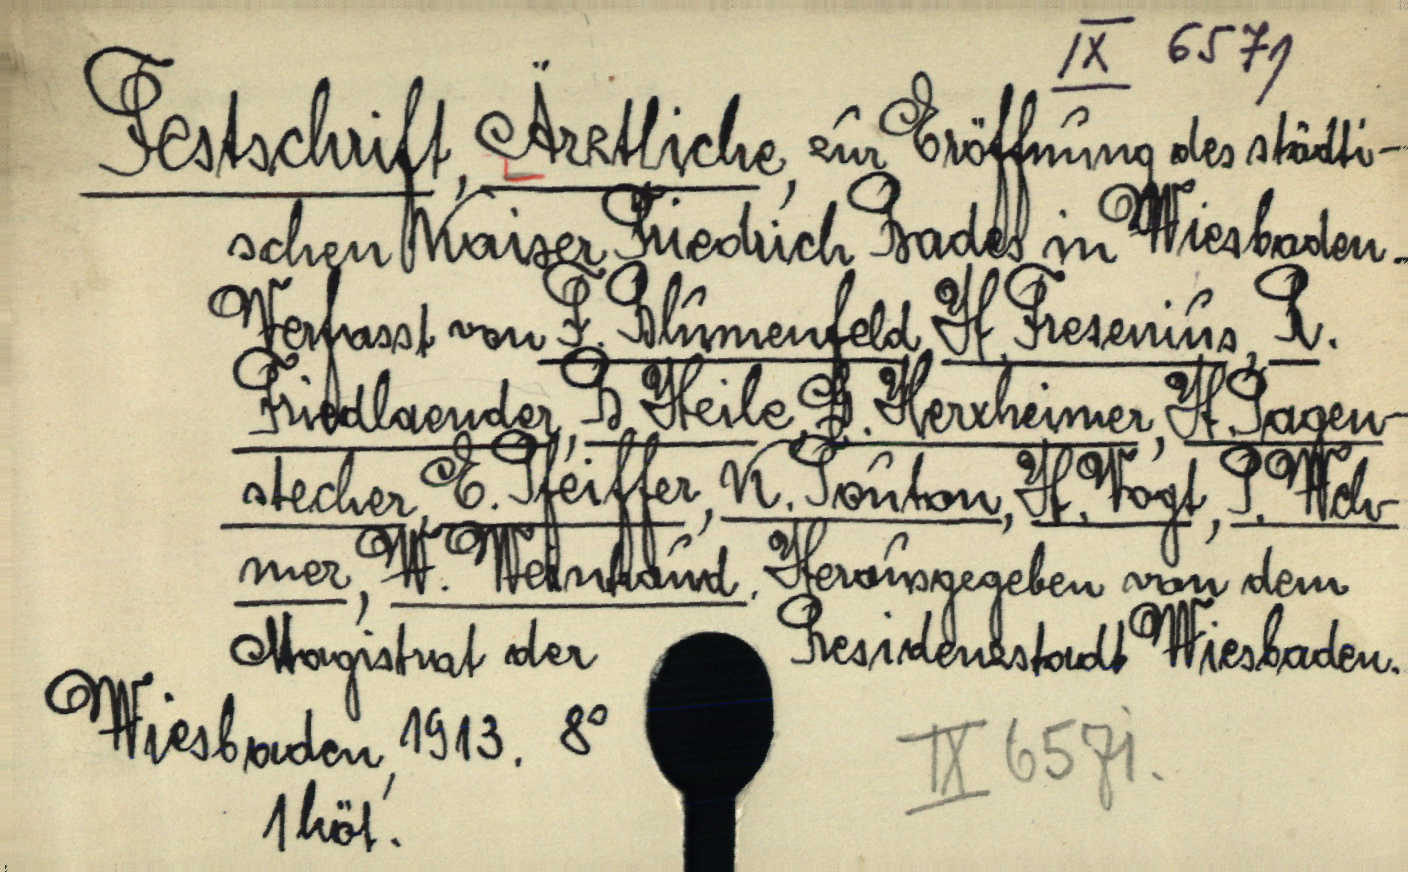 IX 657j
Festschrift, Ärztliche, zur Eröffnung des städti-
schen Kaiser Friedrich Bades in Wiesbaden.
Verfasst von F. Blumenfeld, H. Fresenius, R.
Friedlaender, B. Heile, G. Herxheimer, H. Pagen-
stecher, E. Pfeiffer, K. Touton, H. Vogt, P. Weh-
mer, W. Weintraud. Herausgegeben von dem
Magistrat der Residenzstadt Wiesbaden.
Wiesbaden, 1913. 8°
1 köt.
IX 657j.